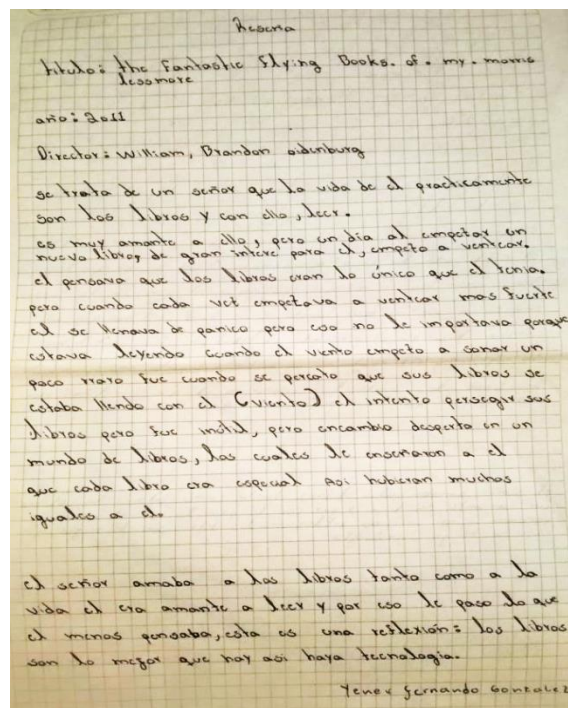 Reseña
titulo: the Fantastic Flying Books. of. my. morris
lessmore
año: 2011
Director: William, Brandon oldenburg
se trata de un señor que la vida de el practicamente
son los libros y con ello, leer.
es muy amante a ello, pero un día al empezar un
nuevo libro, de gran intere para el, empezo a ventear.
el pensava que los libros eran lo único que el tenia.
pero cuando cada vez empezava a ventear mas fuerte
el se llenava de panico pero eso no le importava porque
estava leyendo cuando el viento empezo a sonar un
poco raro fue cuando se percato que sus libros se
estaba llendo con el (viento) el intento persegir sus
libros pero fue inútil, pero encambio desperto en un
mundo de libros, los cuales le enseñaron a el
que cada libro era especial Asi hubieran muchos
iguales a el.
el señor amaba a los libros tanto como a la
vida el era amante a leer y por eso le paso lo que
el menos pensaba, esta es una reflexión: los libros
son lo mejor que hay asi haya tecnologia.
Yener fernando Gonzalez